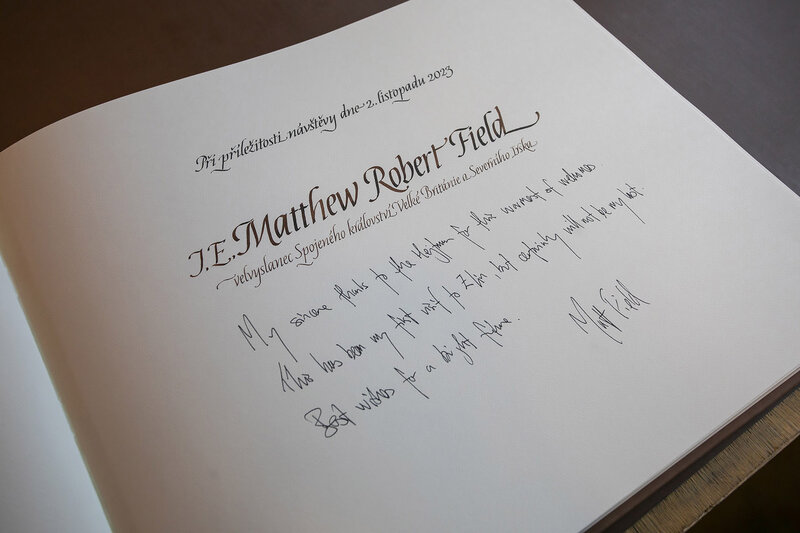 Při příležitosti návštěvy dne 2. listopadu 2023
J.E. Matthew Robert Field
velvyslanec Spojeného království Velké Británie a Severního Irska
My sincere thanks to the Hejtman for this warmest of welcomes.
This has been my first visit to Zlín, but certainly will not be my last.
Best wishes for a bright future.
Matt Field